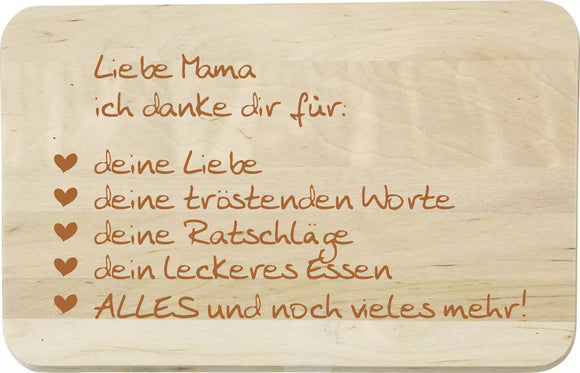 Liebe Mama
ich danke dir für:
deine Liebe
deine tröstenden Worte
deine Ratschläge
dein leckeres Essen
ALLES und noch vieles mehr!